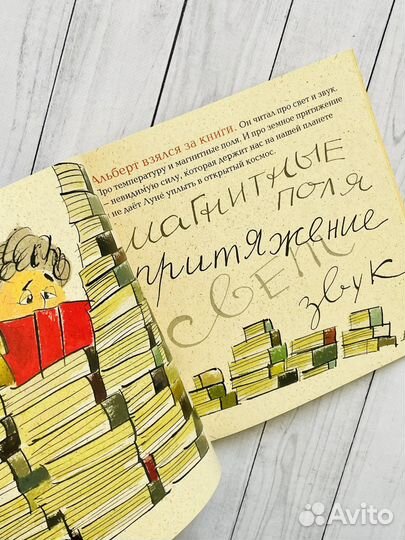 Альберт взялся за книги. Он читал про свет и звук.
Про температуру и магнитные поля. И про земное притяжение
– невидимую силу, которая держит нас на нашей планете
и не даёт Луне уплыть в открытый космос.
магнитные
поля
притяжение
свет
звук
Avito